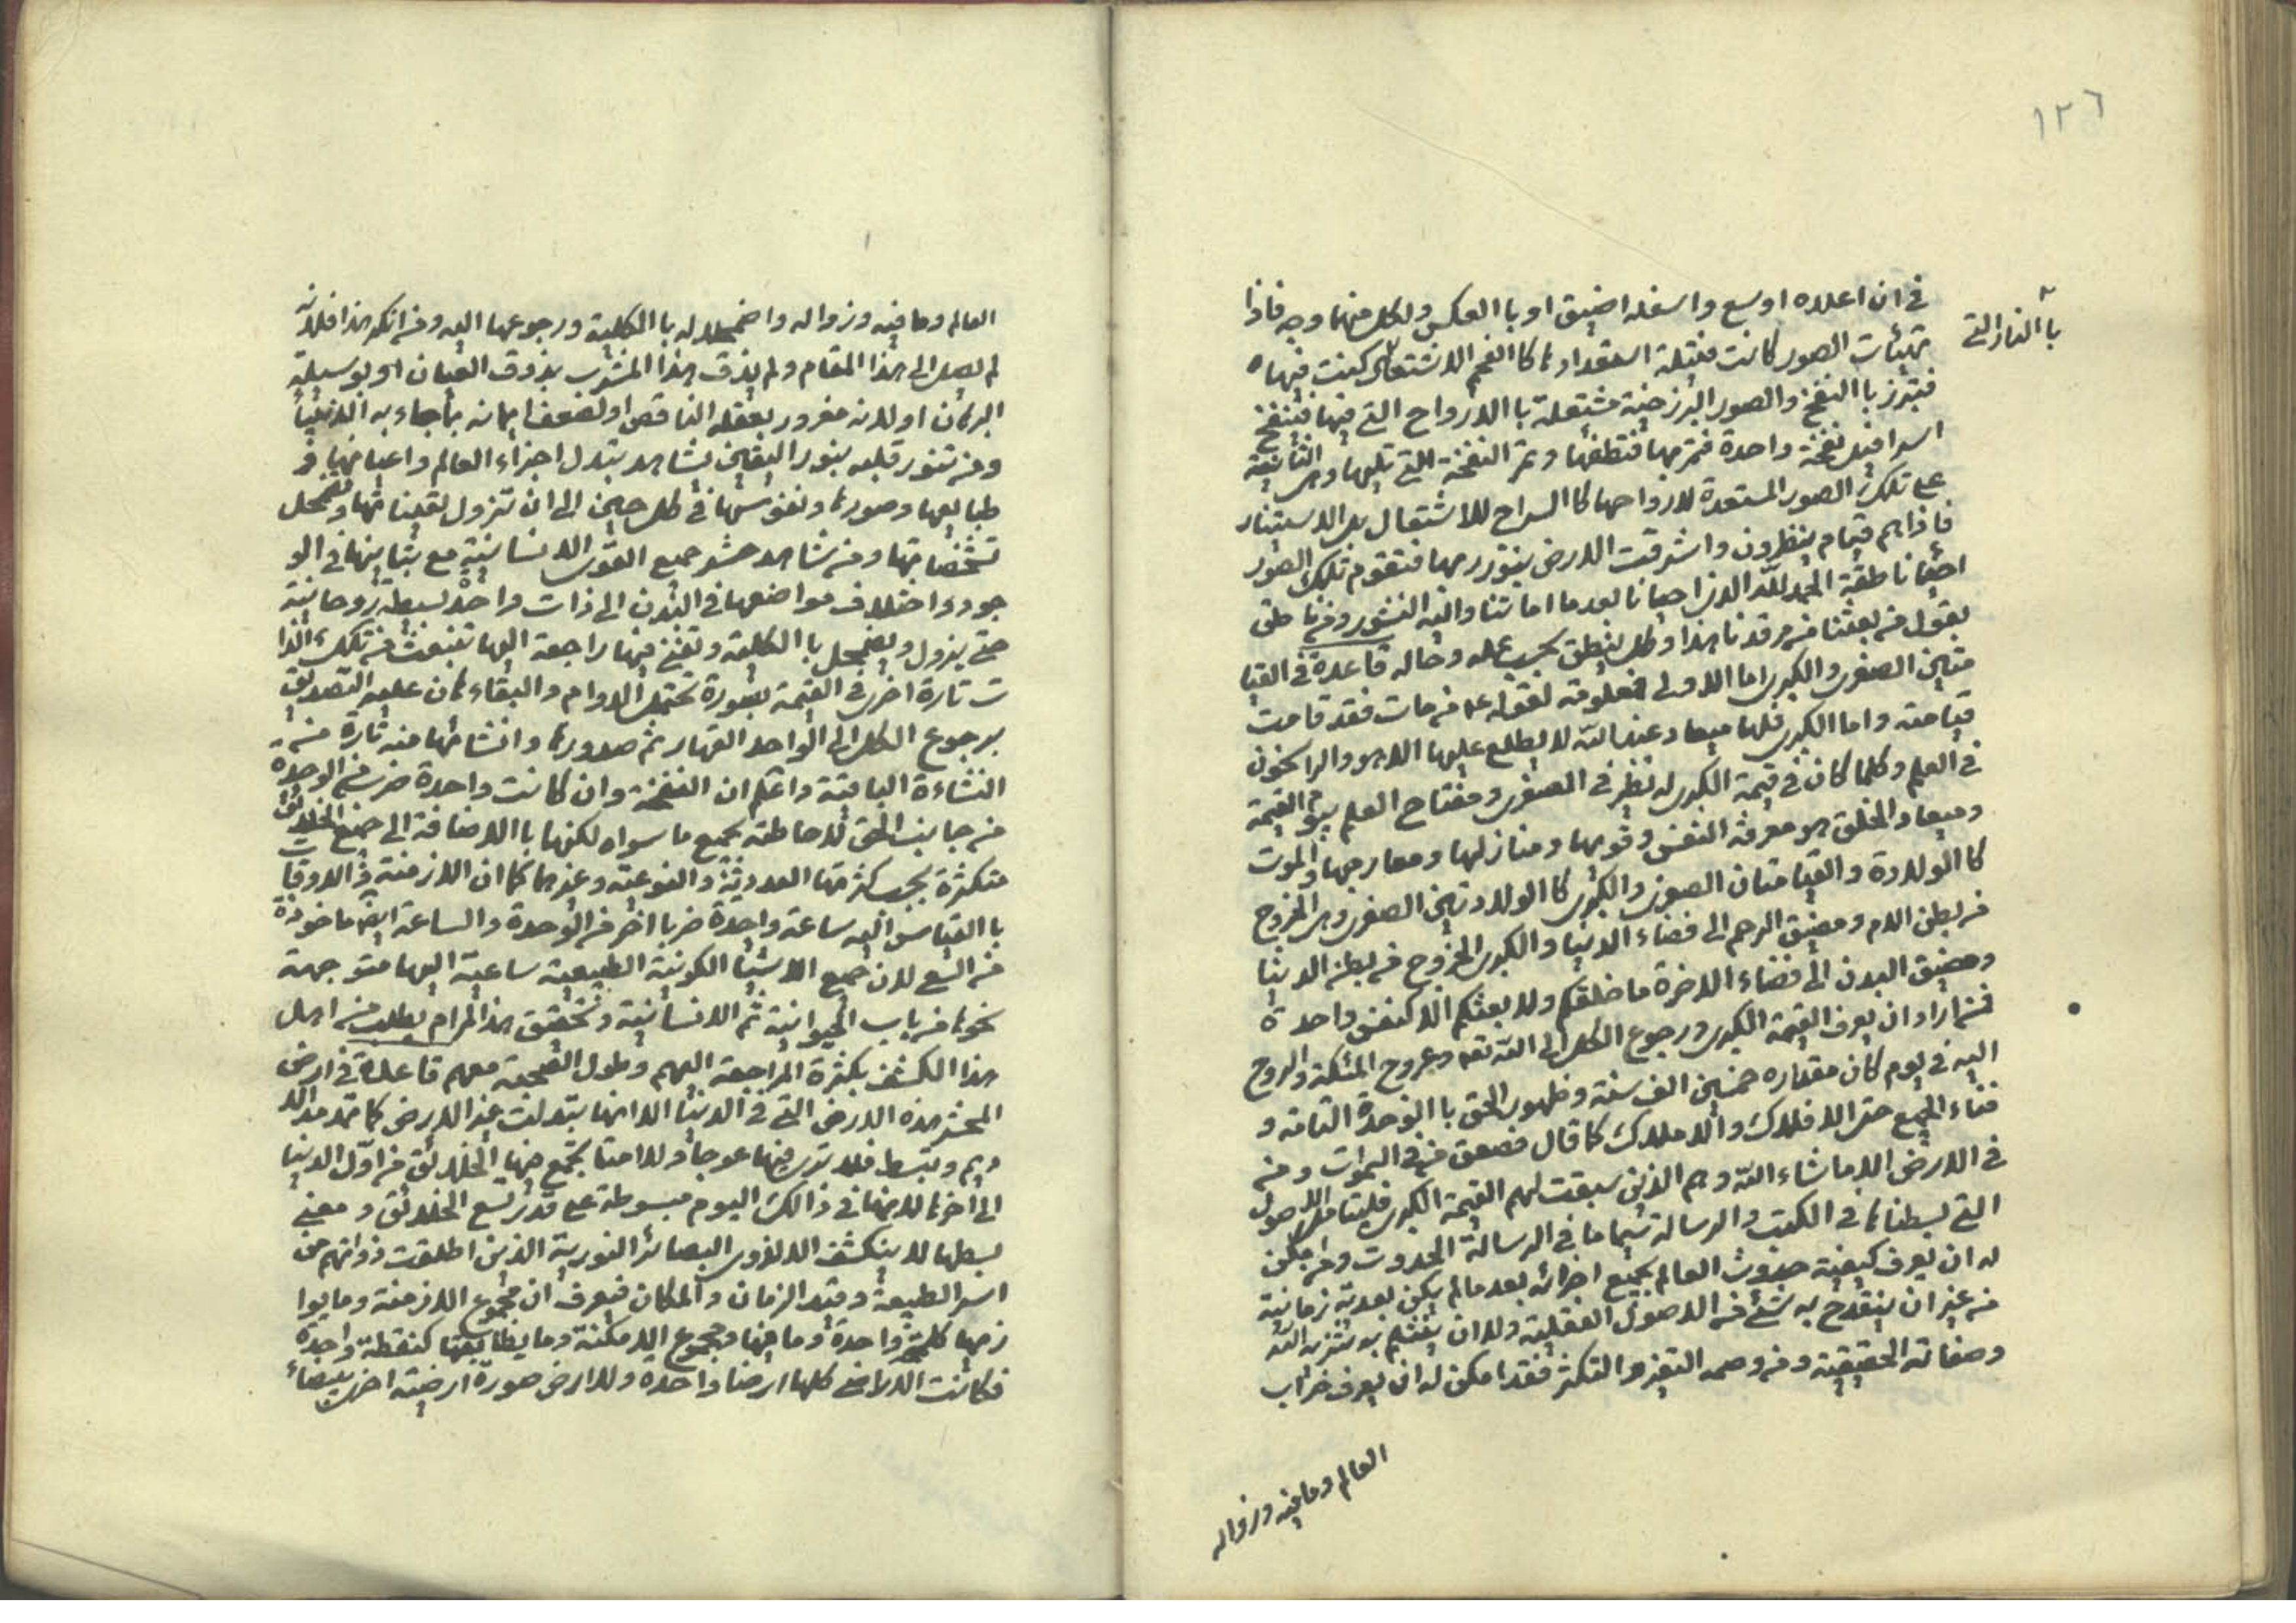 ١٢٦
في ان اعلاه اوسع واسفله اضيق او با العكس ولكل منهما وجه فاذا
تهيئات الصور كانت فتيلة استعدادها كا الفحم للاشتعال كمنت فيها
با النار التي
فتبرز با النفخ والصور البرزخية مشتعلة با الارواح التي فيها فينفخ
اسرافيل نفخة واحدة فتمر بها فتطفئها وتمر النفخة التي تليها وهي الثانية
على تلك الصور المستعدة لارواحها كا السراج للاشتعال بعد الاستنار
فاذا هم قيام ينظرون واشرقت الارض بنور ربها فتقوم تلك الصور
احياء ناطقة الحمد لله الذي احيانا بعد ما اماتنا واليه النشور ومن ناطق
يقول من بعثنا من مرقدنا هذا وكل ينطق بحسب علمه وحاله قاعدة في القيا
متين الصغرى والكبرى اما الاولى فمعلومة لقوله ع من مات فقد قامت
قيامته واما الكبرى فلها ميعاد عند الله لا يطلع عليها الا هو والراسخون
في العلم وكلما كان في قيمة الكبرى له نظير في الصغرى ومفتاح العلم بيوم القيمة
وميعاد الخلق هو معرفة النفس وقويها ومنازلها ومعارجها والموت
كا الولادة والقيامتان الصغرى والكبرى كا الولادتين الصغرى وهي الخروج
من بطن الام ومضيق الرحم الى فضاء الدنيا والكبرى الخروج من بطن الدنيا
ومضيق البدن الى فضاء الاخرة ما خلقكم ولا بعثكم الا كنفس واحدة
فمن اراد ان يعرف القيمة الكبرى ورجوع الكل الى الله تعه وعروج الملئكة والروح
اليه في يوم كان مقداره خمسين الف سنة وظهور الحق با الوحدة التامة و
فناء الجميع حتى الافلاك والاملاك كما قال فصعق من في السموات ومن
في الارض الا ما شاء الله وهم الذين سبقت لهم القيمة الكبرى فليتامل الاصول
التي بسطناها في الكتب والرسالة سيما ما في الرسالة الحدوث ومن امكن
له ان يعرف كيفية حدوث العالم بجميع اجزائه بعد مالم يكن بعدية زمانية
من غير ان ينقدح به شئ من الاصول العقلية ولا ان ينثلم به تنزيه الله
وصفاته الحقيقية من وصمه التغير والتكثر فقد امكن له ان يعرف خراب
العالم وما فيه وزواله
العالم وما فيه وزواله واضمحلاله با الكلية ورجوعها اليه ومن انكر هذا فلانه
لم يصل الى هذا المقام ولم يذق هذا المشرب بذوق العيان او بوسيلة
البرهان او لانه مغرور بعقله الناقص او لضعف ايمانه بما جاء به الانبياء
ومن تنور قلبه بنور اليقين يشاهد تبدل اجزاء العالم واعيانها و
طبايعها وصورها ونفوسها في كل حين الى ان تزول تعيناتها وتضمحل
تشخصاتها ومن شاهد حشر جميع القوى الانسانية مع تباينها في الو
جود واختلاف مواضعها في البدن الى ذات واحدة بسيطة روحانية
حتى يزول ويضمحل با الكلية وتفنى فيها راجعة اليها تنبعث من تلك الذا
ت تارة اخرى في القيمة بصورة تحتمل الدوام والبقاء هان عليه التصديق
برجوع الكل الى الواحد القهار ثم صدورها وانشائها منه تارة من
النشاءة الباقية واعلم ان النفخة وان كانت واحدة ضرب من الوحدة
من جانب الحق لاحاطته بجميع ما سواه لكنها با الاضافة الى جميع الخلائق
متكثرة بحسب كثرتها العددية والنوعية وغيرهما كما ان الازمنة والاوقات
با القياس اليه ساعة واحدة ضربا اخر من الوحدة والساعة ايضا ماخوذة
من السع لان جميع الاشيا الكونية الطبيعية ساعية اليها متوجهة
نحوها من باب الحيوانية ثم الانسانية وتحقيق هذا المرام يطلب من اهل
هذا الكشف بكثرة المراجعة اليهم وطول الصحبة معهم قاعدة في ارض
المحشر هذه الارض التي في الدنيا الا انها تبدلت غير الارض كما تمد مد الا
ديم وتبسط فلا ترى فيها عوجا ولا امتا تجمع فيها الخلائق من اول الدنيا
الى اخرها لانها في ذالك اليوم مبسوطة على قدر تسع الخلائق و معنى
بسطها لا ينكشف الا لذوى البصائر النورية الذين اطلقت ذواتهم من
اسر الطبيعة وقيد الزمان والمكان فيعرف ان مجموع الازمنة وما يوا
زيها كلمح واحدة وما فيها ومجموع الامكنة وما يطابقها كنقطة واحدة
فكانت الاراضى كلها ارضا واحدة وللارض صورة ارضية اخرى بيضاء